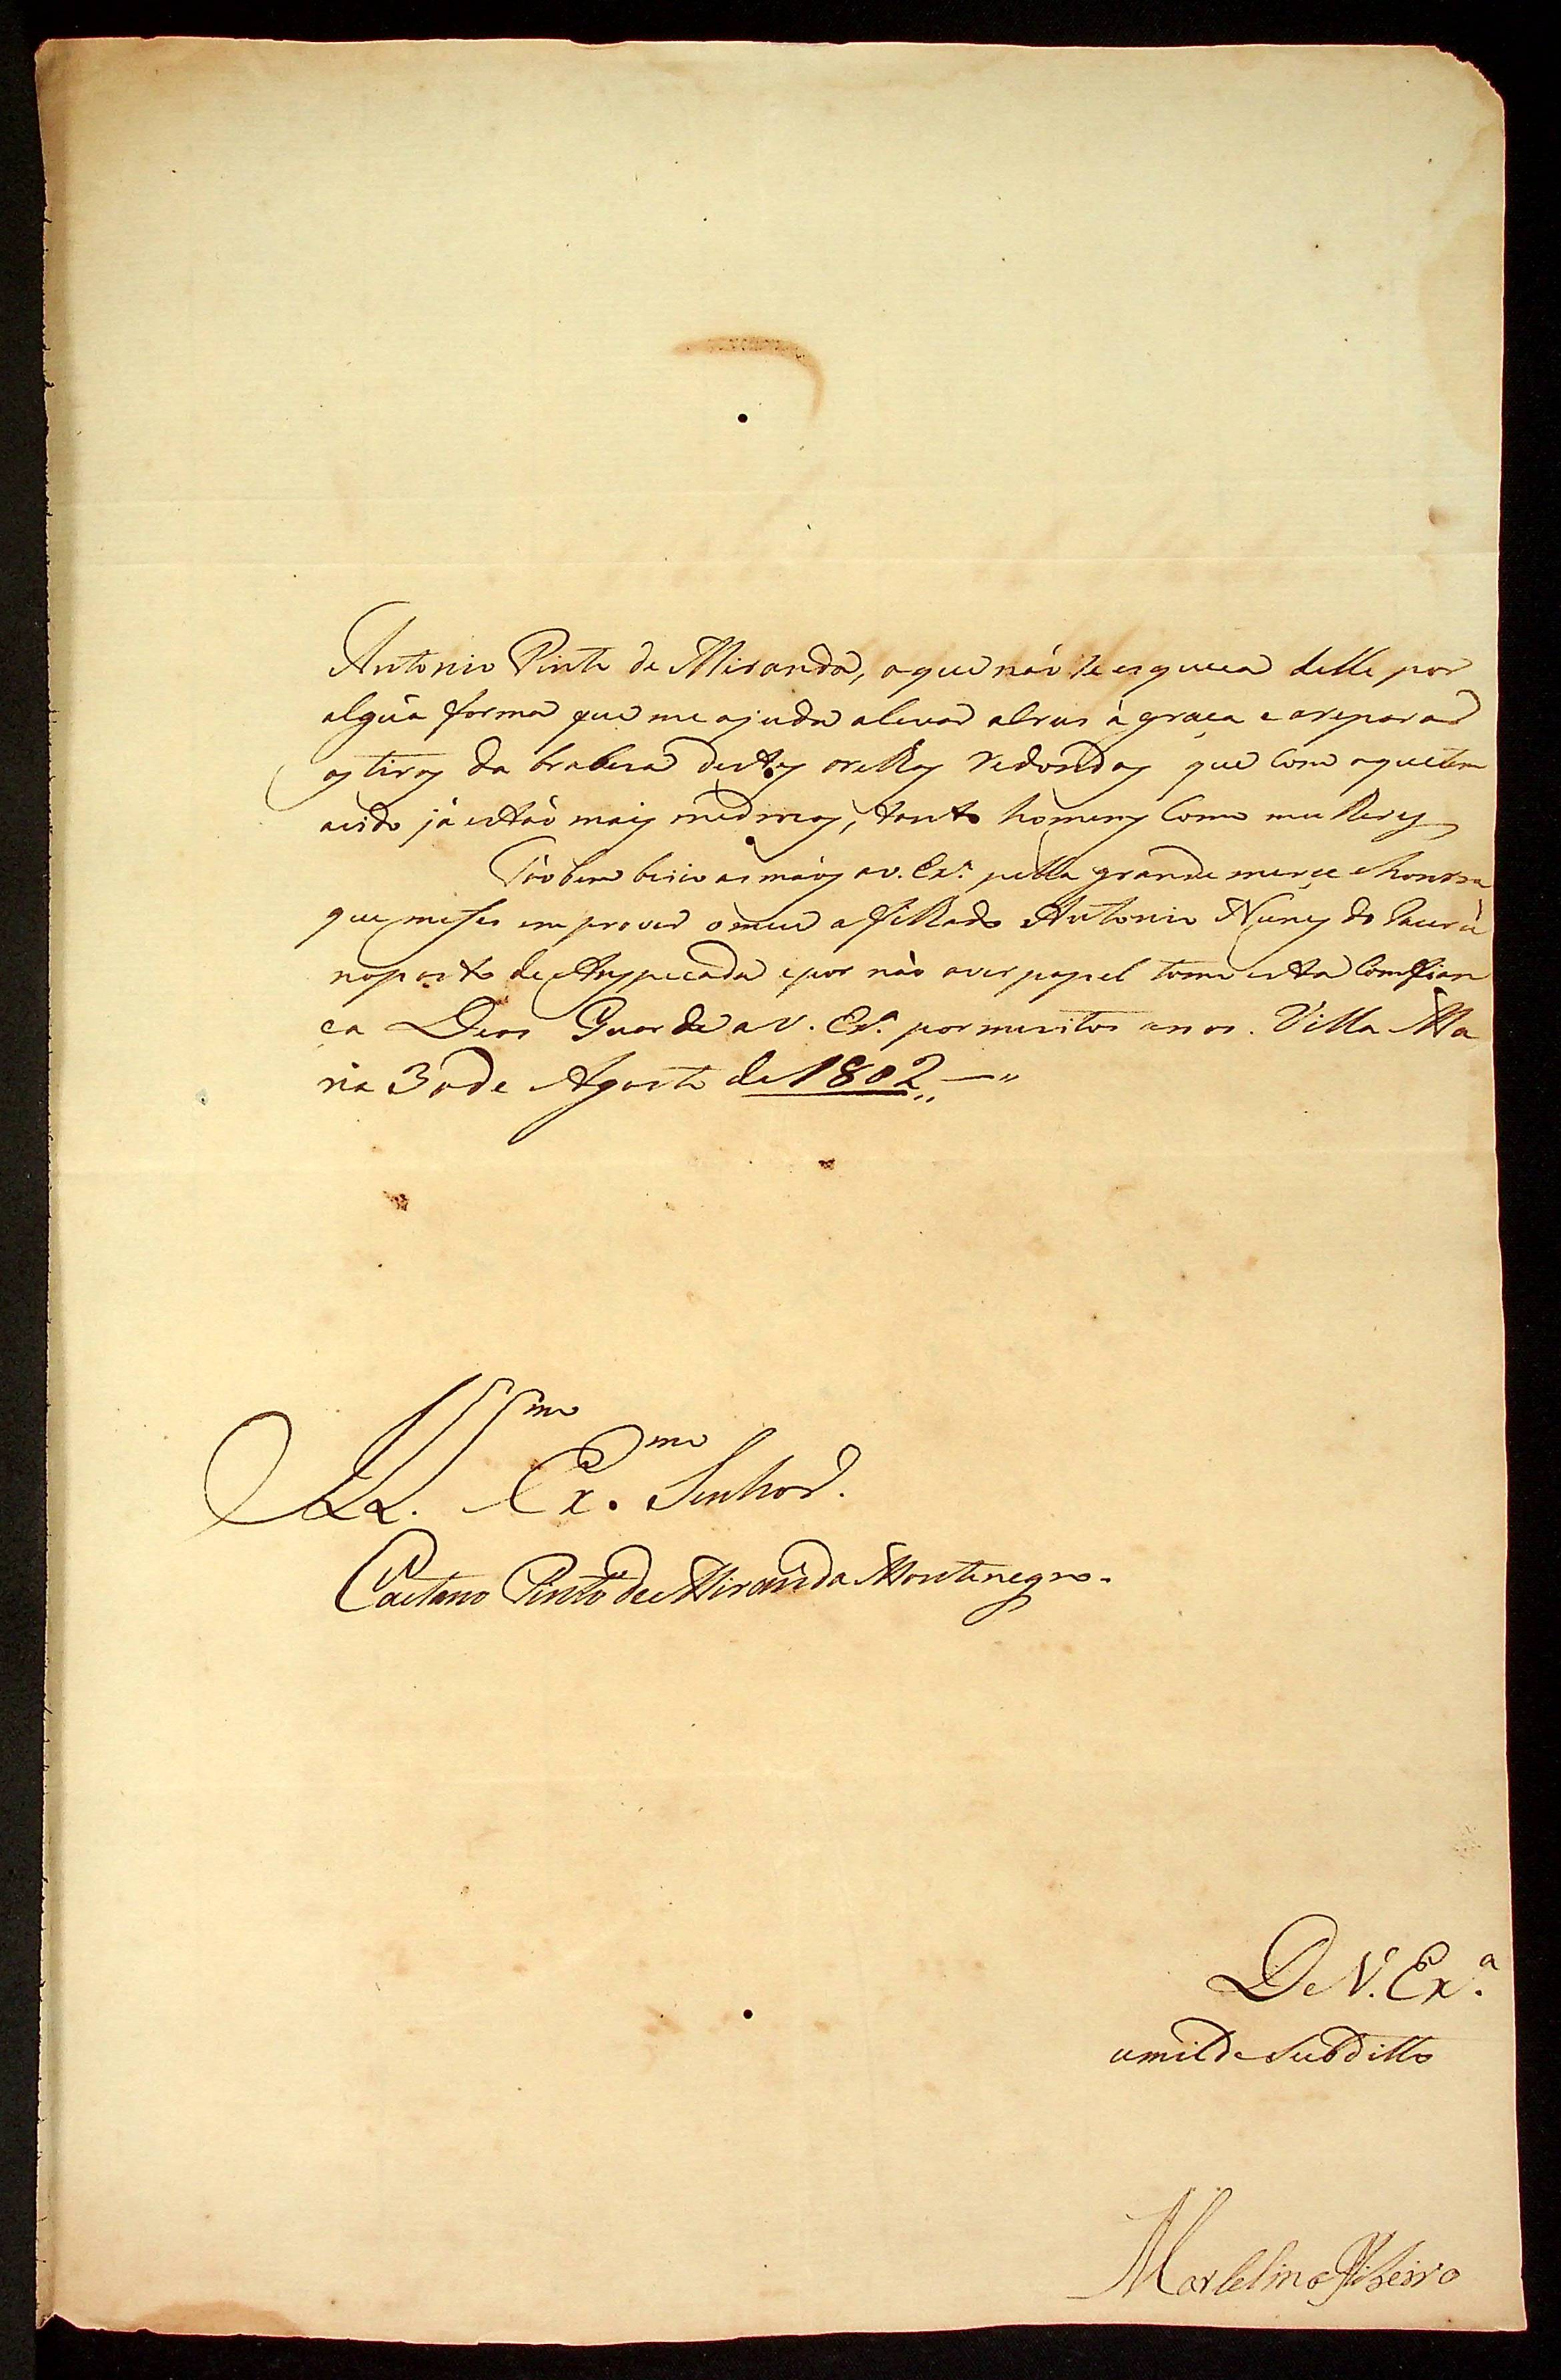 Antonio Pinto de Miranda, aque não se esqueca delle por
algũa forma que me ajuda alevar a Crus à graca e areparar
os tiros da brabesa destes orelhas redondas que com aque tem
avido já estaõ mais medrosos, tanto homens como mulheres
Tãobem beiio as mãos a v. Exª. pella grande merçe e honrra
que mefes em prover o meu afilhado Antonio Nunes do
no posto de Anspecada e por não aver papel tomo esta Comfian
ca Deos Guarde a V. Exª. por muitos anos. Villa Ma
ria 30 de Agosto de 1802,,—"
Illmo. Exmo. Senhor.
Caetano Pinto de Miranda Montenegro.
De V. Exª.
umilde Subditto
Marcelino Ribeiro